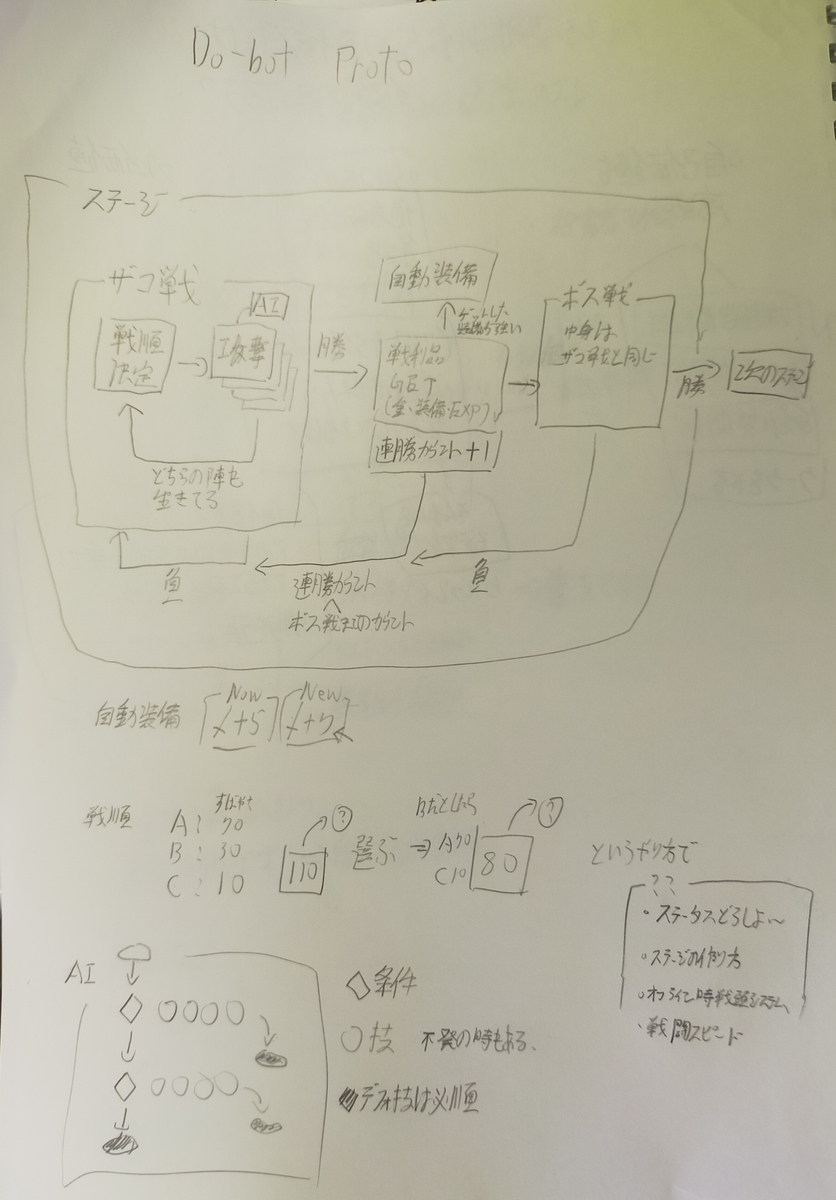 Do-bot Proto
ステージ
ザコ戦
AI
戦順
決定
攻撃
どちらの陣も
生きてる
勝
自動装備
ゲットした
装備が強い
戦利品
GET
(金・装備・EXP)
連勝カウント+1
ボス戦
中身は
ザコ戦と同じ
勝
次のステージ
負
連勝カウント
ボス戦のカウント
負
自動装備
Now
+5
New
+7
戦順
すばやさ
A: 70
B: 30
C: 10
110
?
選ぶ
⇒
Bだとしたら
A70
C10
80
?
というやり方で
??
・ステータスどうしよ〜
・ステージの作り方
・オフライン時戦闘システム
・戦闘スピード
AI
◇条件
○技 不発の時もある.
デフォ技は必須